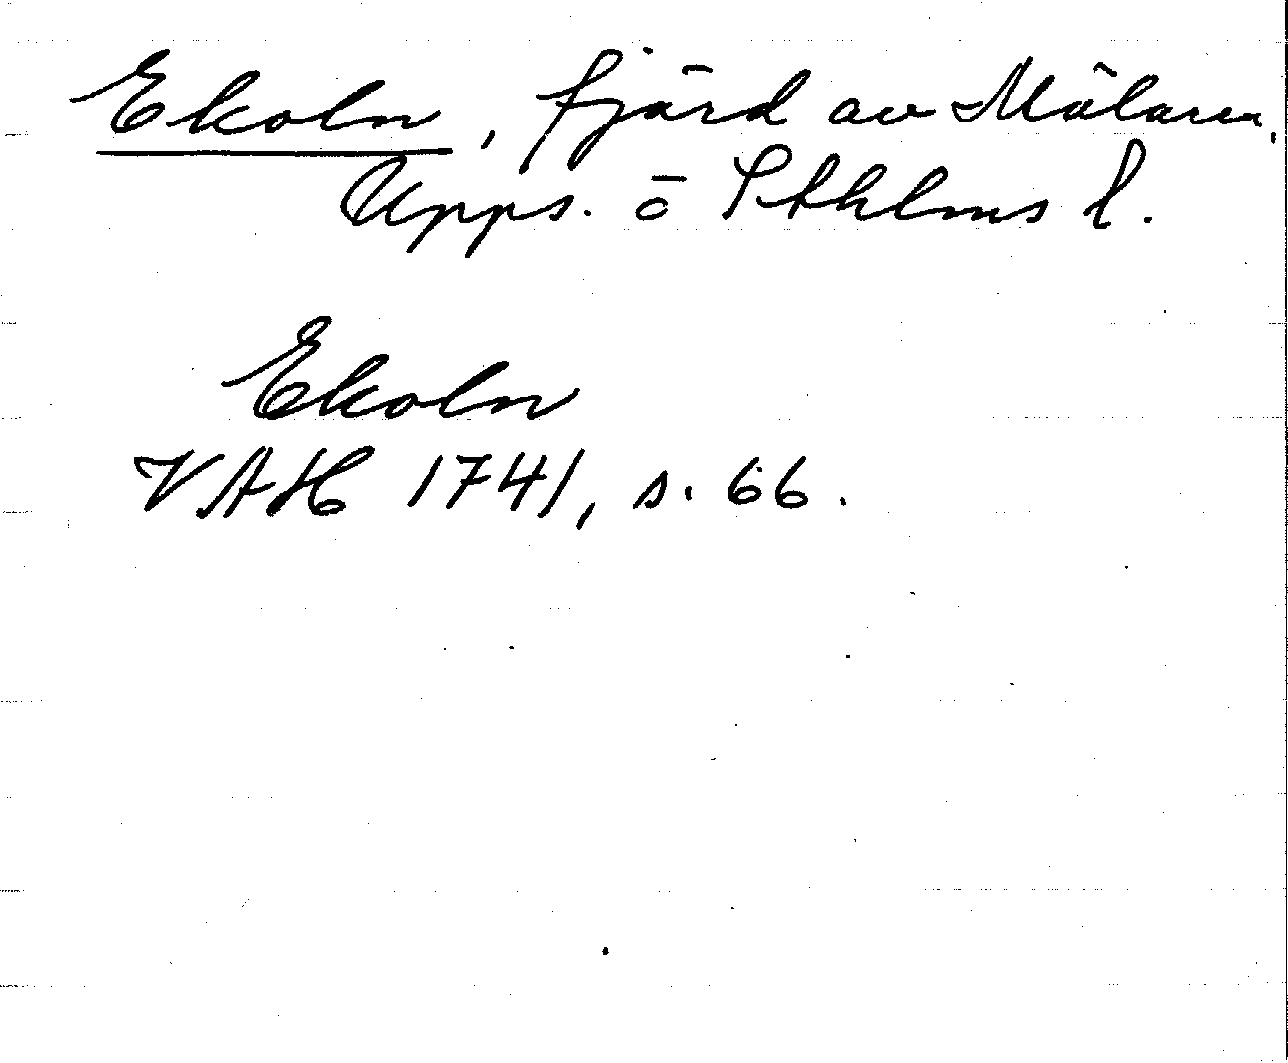 Ekoln, fjärd av Mälaren,
Upps. o Sthlms l.
Ekoln
VAH 1741, s. 66.